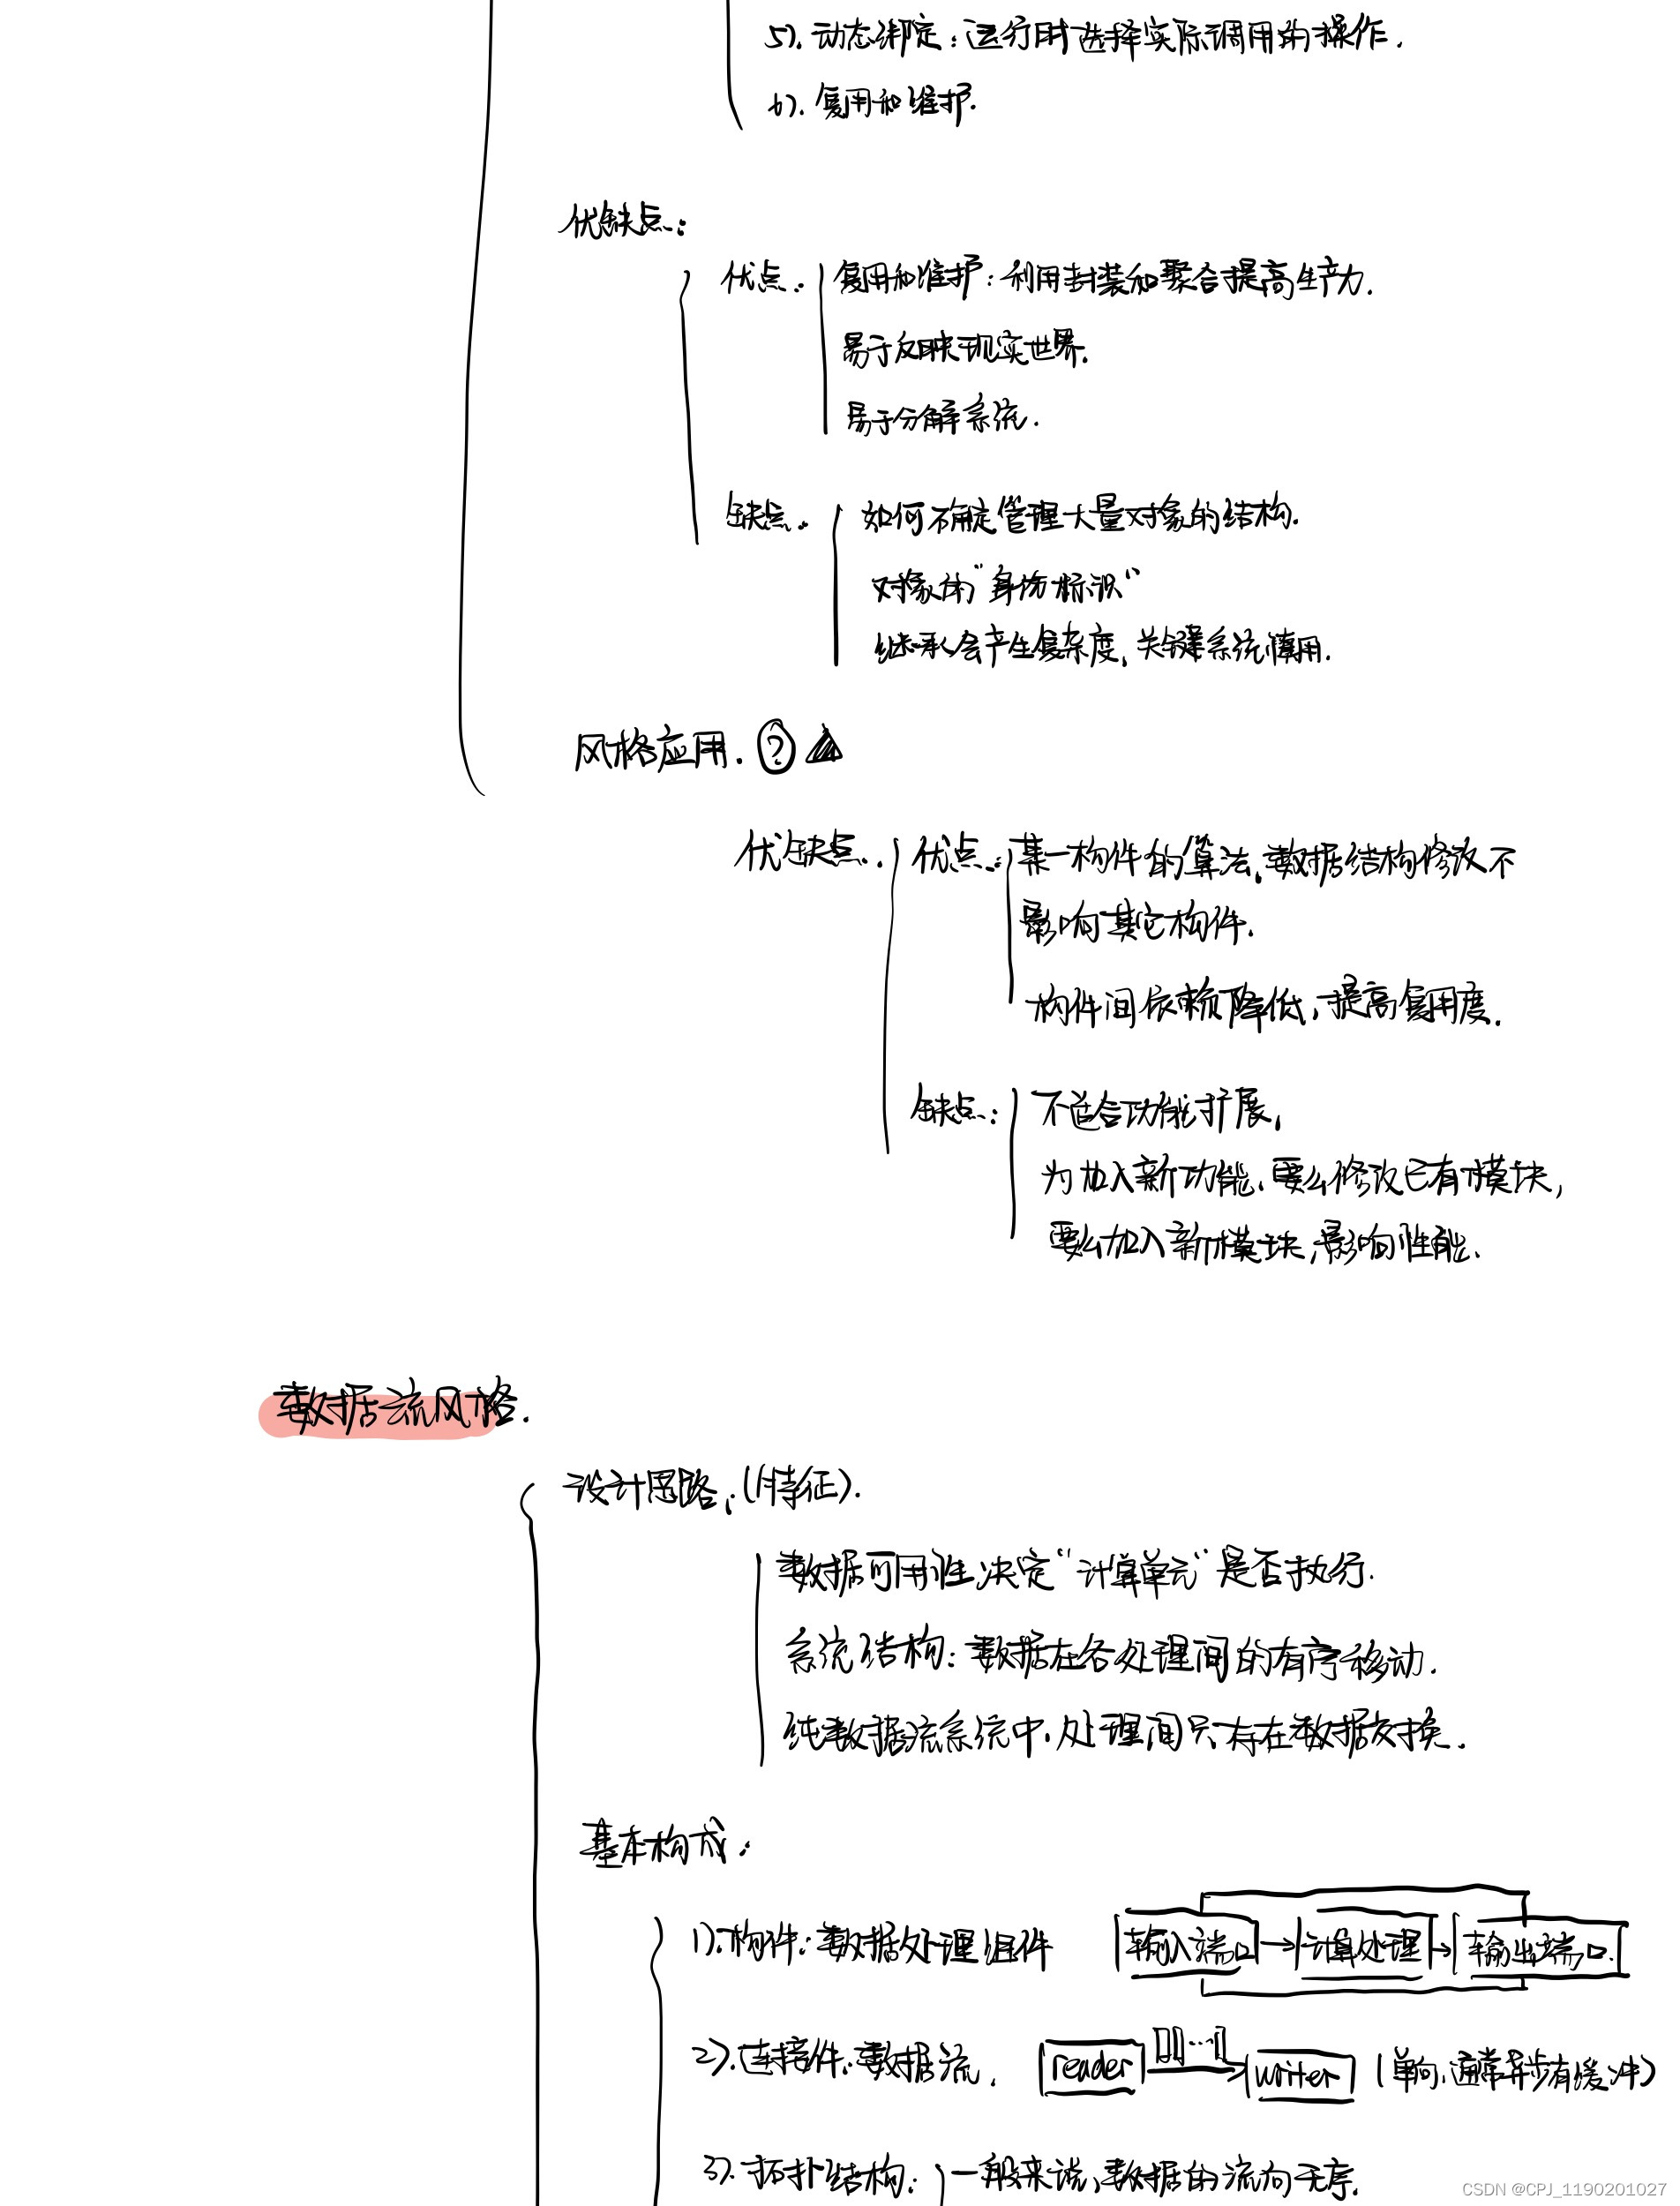 5). 动态绑定：运行时选择实际调用的操作.
6). 复用和维护.
优缺点：
优点. 复用和维护：利用封装和聚合提高生产力.
易于反映现实世界.
易于分解系统.
缺点. 如何确定管理大量对象的结构.
对象的"身份标识"
继承会产生复杂度，关键系统慎用.
风格应用. ?
优缺点. 优点：某一构件的算法、数据结构修改不
影响其它构件.
构件间依赖降低、提高复用度.
缺点：不适合功能扩展，
为加入新功能、要么修改已有模块，
要么加入新模块，影响性能.
数据流风格.
设计思路：(特征).
数据可用性决定"计算单元"是否执行.
系统结构：数据在各处理间的有序移动.
纯数据流系统中，处理间只存在数据交换.
基本构成：
1). 构件：数据处理组件 输入端口 → 计算处理 → 输出端口
2). 连接件：数据流. reader ... writer (单向、通常异步有缓冲)
3). 拓扑结构：一般来说、数据的流向无序.
CSDN @CPJ_1190201027